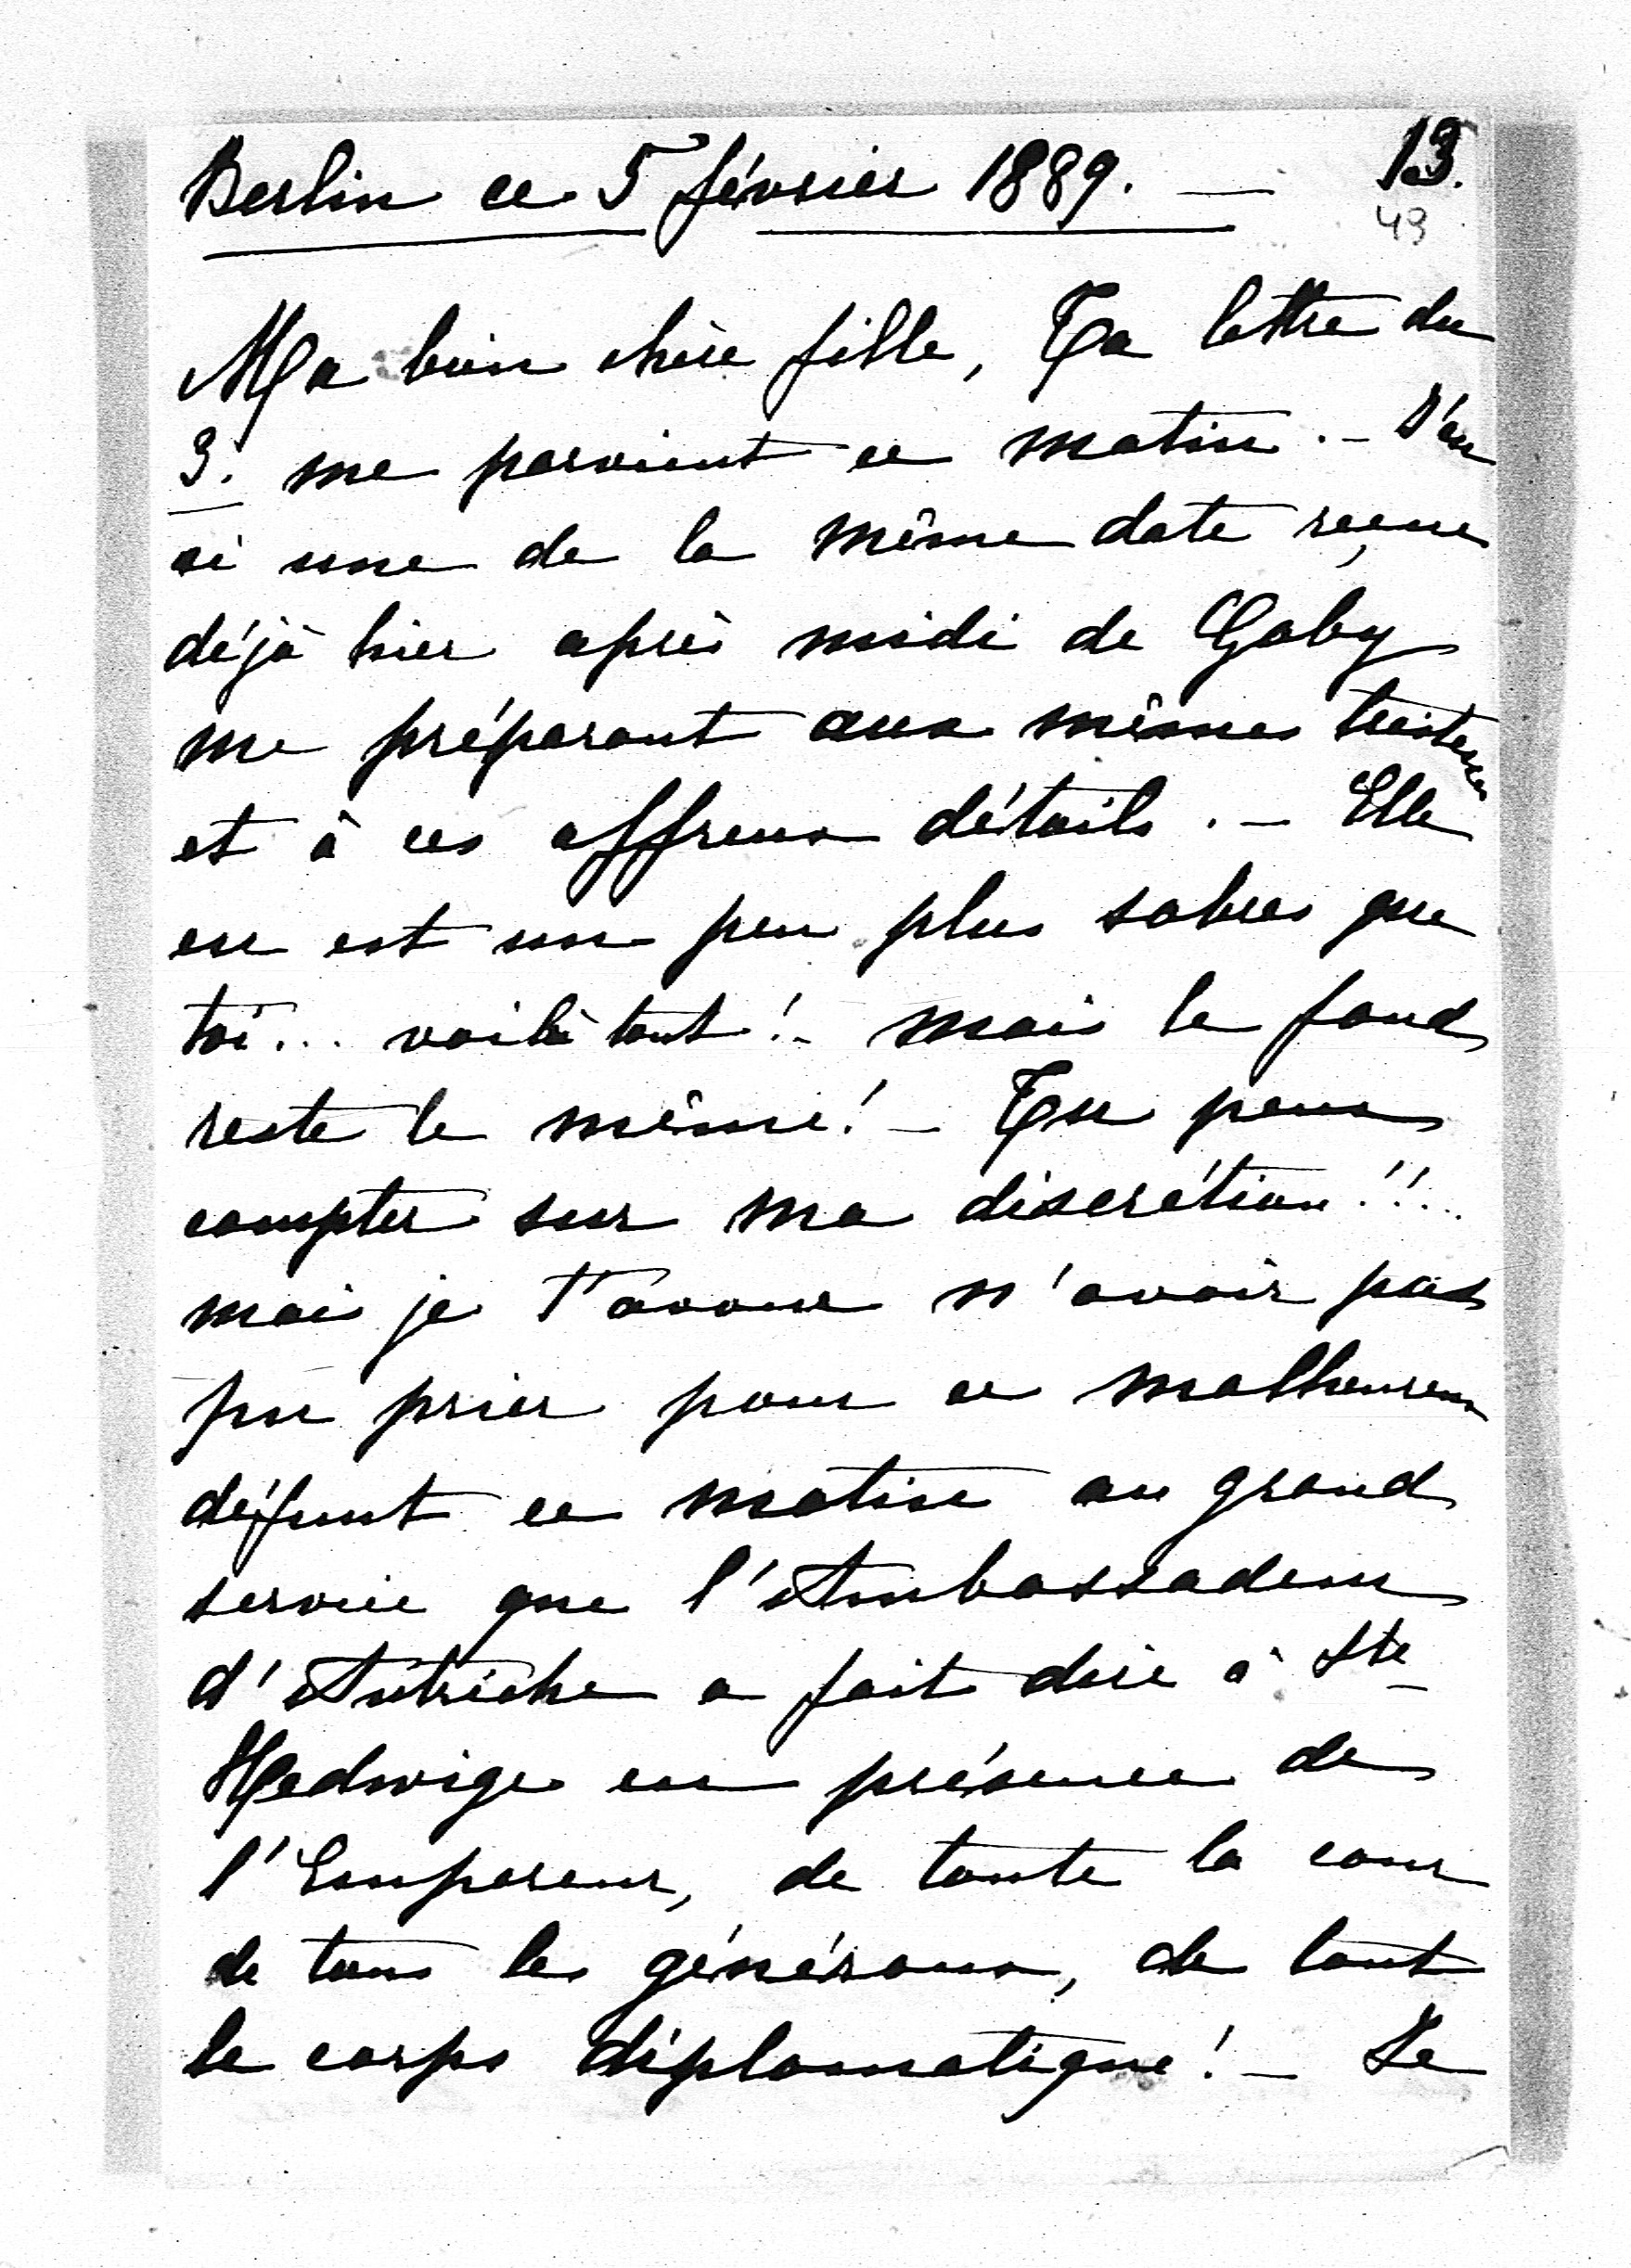 Berlin ce 5 février 1889. — 13.
49
Ma bien chère fille, Ta lettre du
3. me parvient ce matin. – J'en
ai une de la même date reçue
déjà hier après midi de Gaby
me préparant aux mêmes tristesses
et à ces affreux détails. – Elle
en est un peu plus sobre que
toi... voilà tout! – mais le fond
reste le même! – Tu peux
compter sur ma discrétion!!...
mais je t'avoue n'avoir pas
pu prier pour ce malheureux
défunt ce matin au grand
service que l'Ambassadeur
d'Autriche a fait dire à Ste
Hedwige en présence de
l'Empereur, de toute la cour
de tous les généraux, de tout
le corps diplomatique! – Je